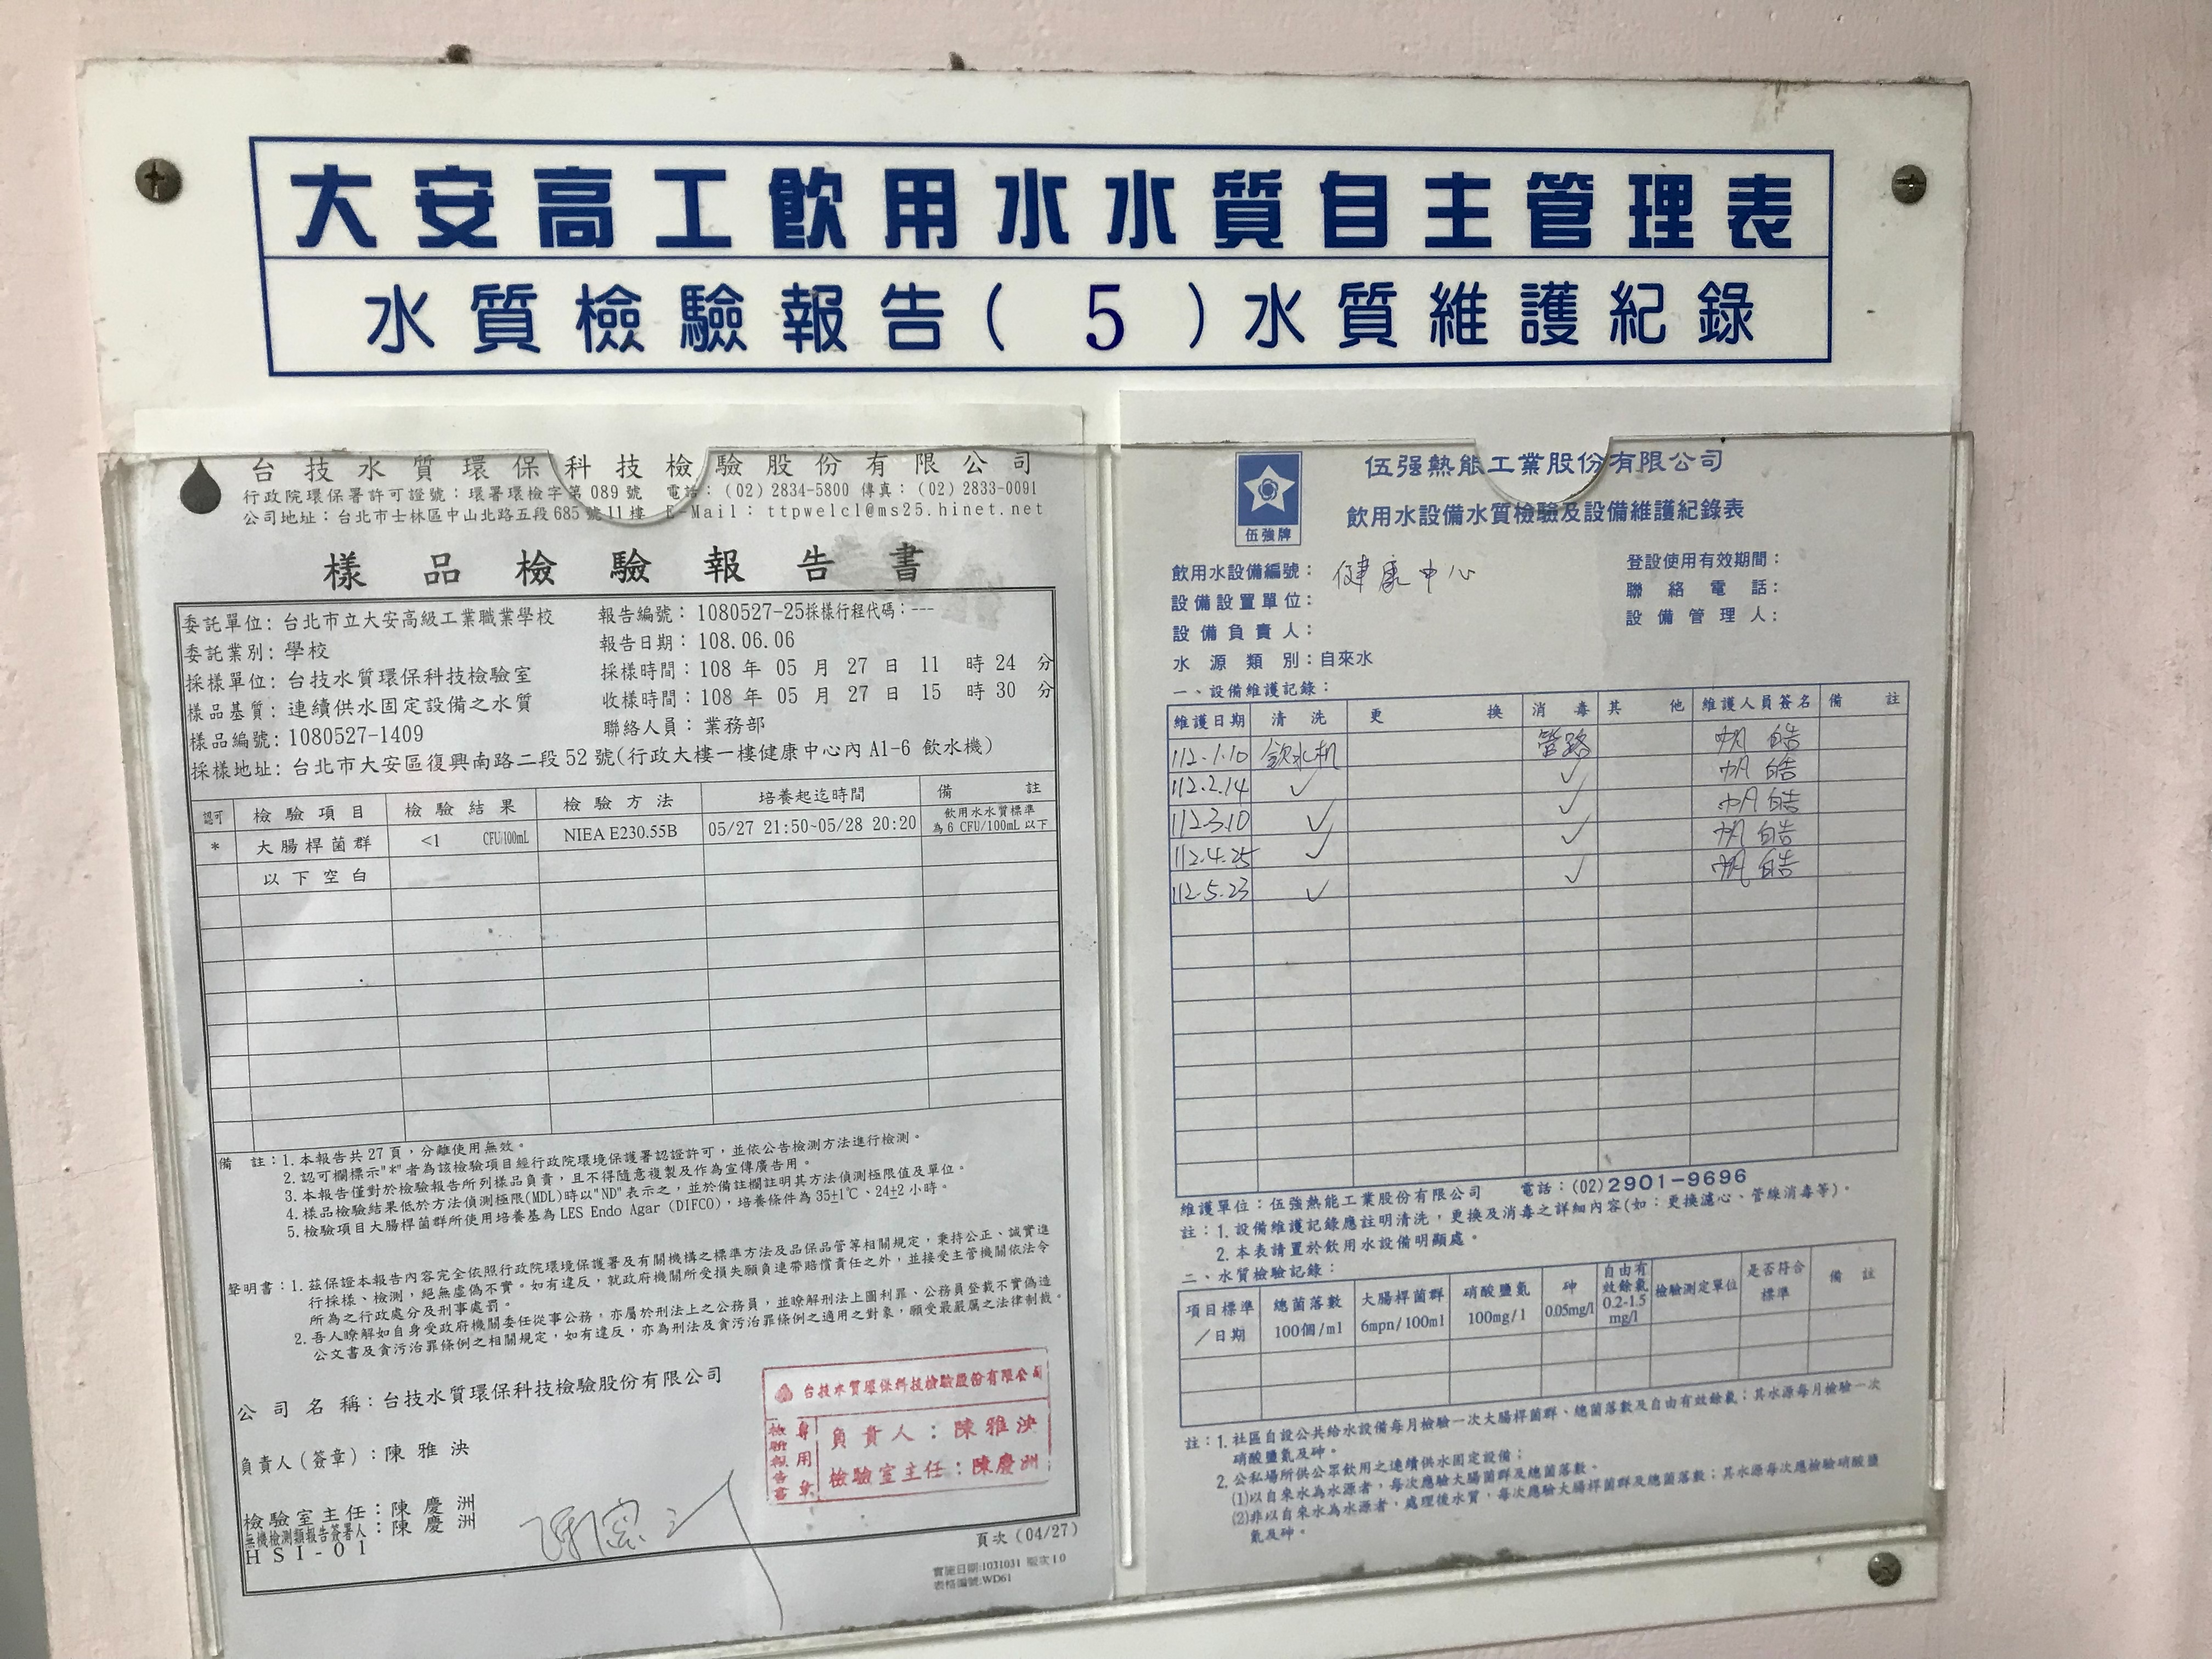 大安高工飲用水水質自主管理表
水質檢驗報告( 5 )水質維護紀錄
台技水質環保科技檢驗股份有限公司
行政院環保署許可證號：環署環檢字第 089 號 電話：(02) 2834-5800 傳真：(02) 2833-0091
公司地址：台北市士林區中山北路五段 685 號 11 樓 E-Mail： ttpwelcl@ms25.hinet.net
樣品檢驗報告書
委託單位: 台北市立大安高級工業職業學校 報告編號：1080527-25採樣行程代碼：---
委託業別: 學校 報告日期：108.06.06
採樣單位: 台技水質環保科技檢驗室 採樣時間：108 年 05 月 27 日 11 時 24 分
樣品基質: 連續供水固定設備之水質 收樣時間：108 年 05 月 27 日 15 時 30 分
樣品編號: 1080527-1409 聯絡人員：業務部
採樣地址: 台北市大安區復興南路二段 52 號(行政大樓一樓健康中心內 A1-6 飲水機)
認可 檢驗項目 檢驗結果 檢驗方法 培養起迄時間 備註
飲用水水質標準為 6 CFU/100mL 以下
* 大腸桿菌群 <1 CFU/100mL NIEA E230.55B 05/27 21:50~05/28 20:20
以下空白
備 註：1.本報告共 27 頁，分離使用無效。
2.認可欄標示"*"者為該檢驗項目經行政院環境保護署認證許可，並依公告檢測方法進行檢測。
3.本報告僅對於檢驗報告所列樣品負責，且不得隨意複製及作為宣傳廣告用。
4.樣品檢驗結果低於方法偵測極限(MDL)時以"ND"表示之，並於備註欄註明其方法偵測極限值及單位。
5.檢驗項目大腸桿菌群所使用培養基為 LES Endo Agar (DIFCO)，培養條件為 35±1℃、24±2 小時。
聲明書：1.茲保證本報告內容完全依照行政院環境保護署及有關機構之標準方法及品保品管等相關規定，秉持公正、誠實進
行採樣、檢測，絕無虛偽不實。如有違反，就政府機關所受損失願負連帶賠償責任之外，並接受主管機關依法令
所為之行政處分及刑事處罰。
2.吾人瞭解如自身受政府機關委任從事公務，亦屬於刑法上之公務員，並瞭解刑法上圖利罪、公務員登載不實偽造
公文書及貪污治罪條例之相關規定，如有違反，亦為刑法及貪污治罪條例之適用之對象，願受最嚴厲之法律制裁。
公司名稱：台技水質環保科技檢驗股份有限公司
負責人(簽章)：陳雅泱
檢驗室主任：陳慶洲
無機檢測類報告簽署人：陳慶洲
HSI-01
台技水質環保科技檢驗股份有限公司
檢驗報告書專用章
負責人：陳雅泱
檢驗室主任：陳慶洲
頁次 (04/27)
實施日期:1031031 版次1.0
表格編號:WD61
伍強牌
伍强熱能工業股份有限公司
飲用水設備水質檢驗及設備維護紀錄表
飲用水設備編號：健康中心 登設使用有效期間：
設備設置單位： 聯絡電話：
設備負責人： 設備管理人：
水源類別：自來水
一、設備維護記錄：
維護日期 清洗 更換 消毒 其他 維護人員簽名 備註
112.1.10 飲水机 管路 帆皓
112.2.14 ✓ ✓ 帆皓
112.3.10 ✓ ✓ 帆皓
112.4.25 ✓ ✓ 帆皓
112.5.23 ✓ ✓ 帆皓
維護單位：伍強熱能工業股份有限公司 電話：(02)2901-9696
註：1. 設備維護記錄應註明清洗，更換及消毒之詳細內容(如：更換濾心、管線消毒等)。
2. 本表請置於飲用水設備明顯處。
二、水質檢驗記錄：
項目標準／日期 總菌落數 100個/ml 大腸桿菌群 6mpn/100ml 硝酸鹽氮 100mg/l 砷 0.05mg/l 自由有效餘氯 0.2-1.5 mg/l 檢驗測定單位 是否符合標準 備註
註：1. 社區自設公共給水設備每月檢驗一次大腸桿菌群、總菌落數及自由有效餘氯；其水源每月檢驗一次
硝酸鹽氮及砷。
2. 公私場所供公眾飲用之連續供水固定設備；
(1)以自來水為水源者，每次應驗大腸菌群及總菌落數。
(2)非以自來水為水源者，處理後水質，每次應驗大腸桿菌群及總菌落數；其水源每次應檢驗硝酸鹽
氮及砷。